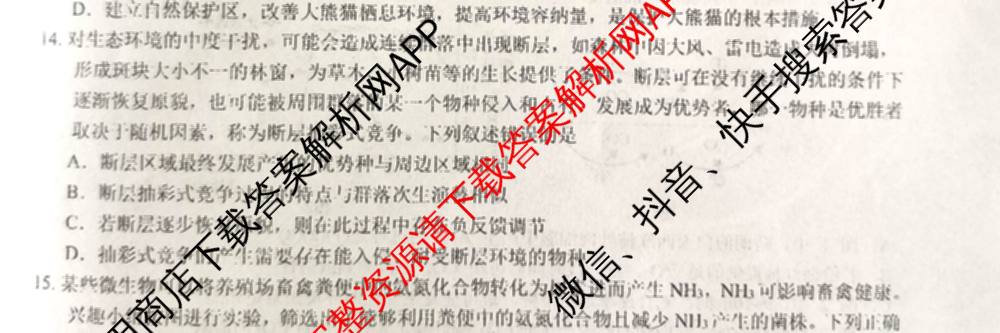 D. 建立自然保护区，改善大熊猫栖息环境，提高环境容纳量，是保护大熊猫的根本措施
14. 对生态环境的中度干扰，可能会造成连续 落中出现断层，如森林中因大风、雷电造成 倒塌，
形成斑块大小不一的林窗，为草本 树苗等的生长提供了 。断层可在没有继续 扰的条件下
逐渐恢复原貌，也可能被周围群 某一个物种侵入和 发展成为优势者，哪一物种是优胜者
取决于随机因素，称为断层 彩式竞争。下列叙述错误的是
A. 断层区域最终发展产 优势种与周边区域相同
B. 断层抽彩式竞争过 的特点与群落次生演替相似
C. 若断层逐步恢 貌，则在此过程中存在负反馈调节
D. 抽彩式竞争的产生需要存在能入侵 耐受断层环境的物种
15. 某些微生物可 将养殖场畜禽粪便中的氨氮化合物转化为 进而产生NH₃，NH₃可影响畜禽健康。
兴趣小 进行实验，筛选出 能够利用粪便中的氨氮化合物且减少NH₃产生的菌株。下列正确
用商店下载答案解析网APP
整资源请下载答案解析网APP
微信、抖音、快手搜索答案